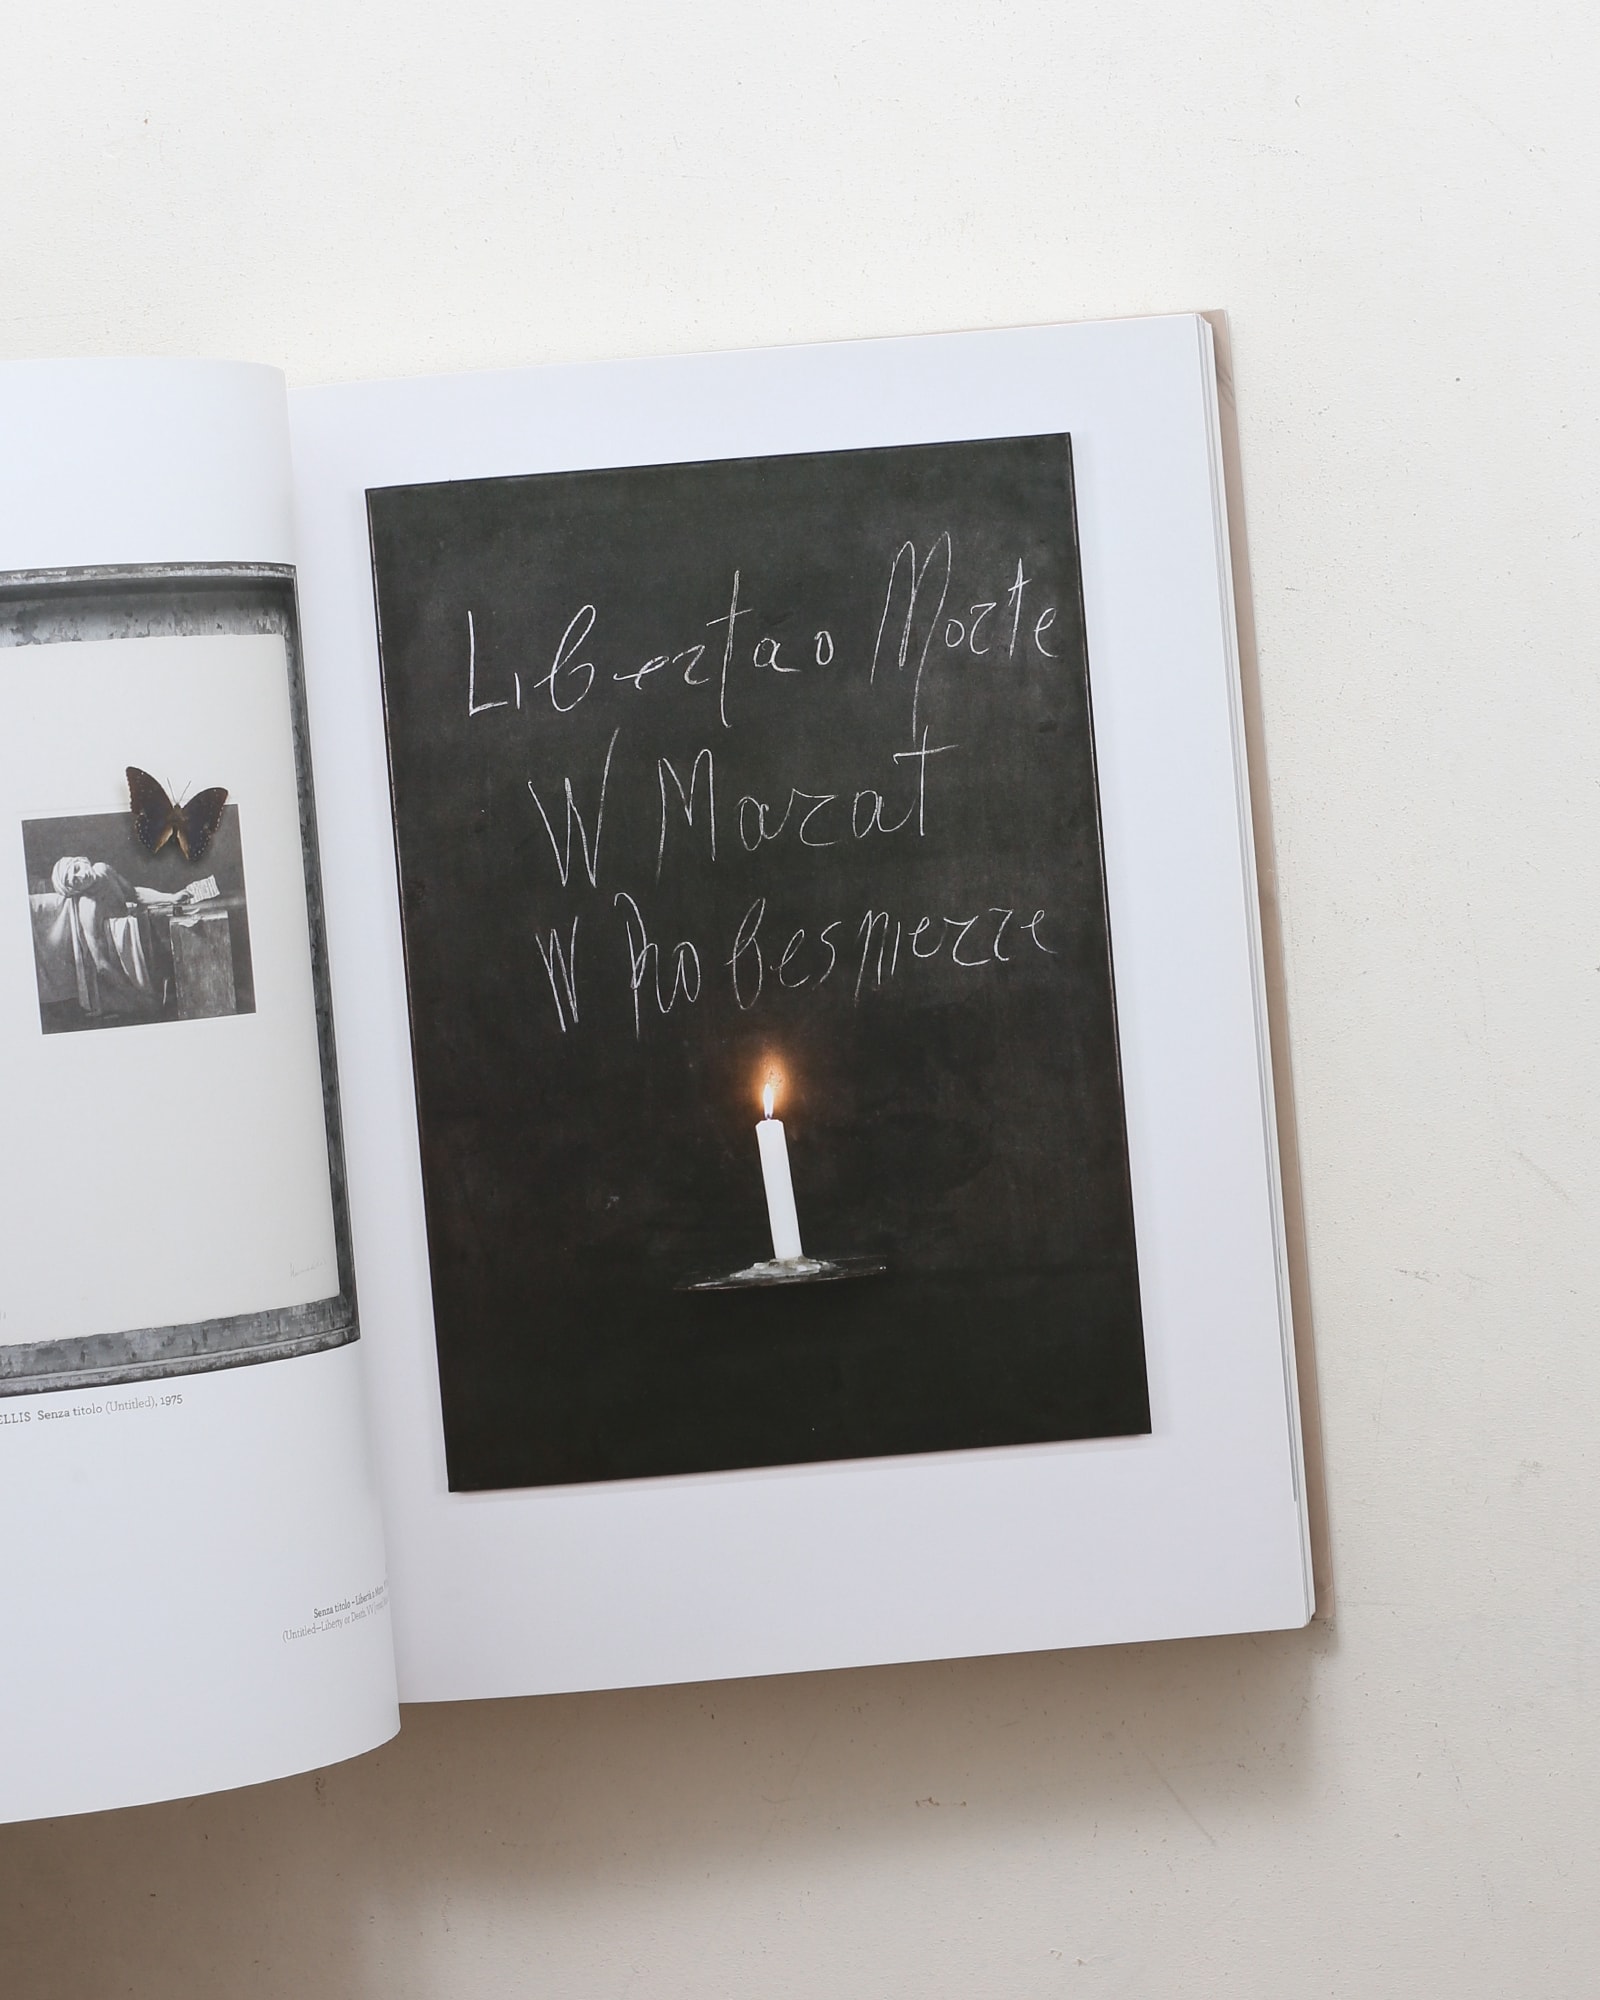 ELLIS Senza titolo (Untitled), 1975
Senza titolo – Libertà o Morte
(Untitled—Liberty or Death W
Libertao Morte
W Marat
W Robespierre